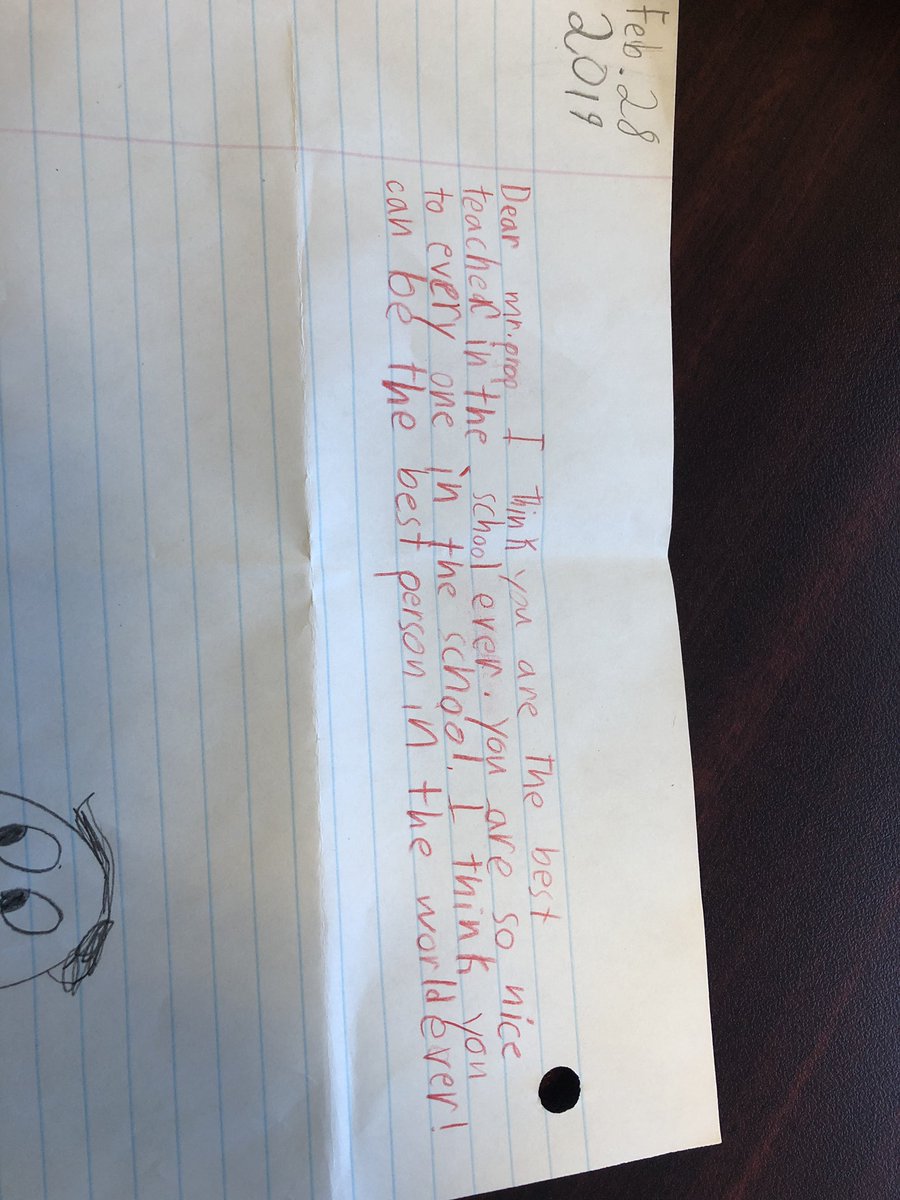 Feb. 28
2019
Dear mr. prop I think you are the best
teacher in the school ever. you are so nice
to every one in the school. I think you
can be the best person in the world ever!